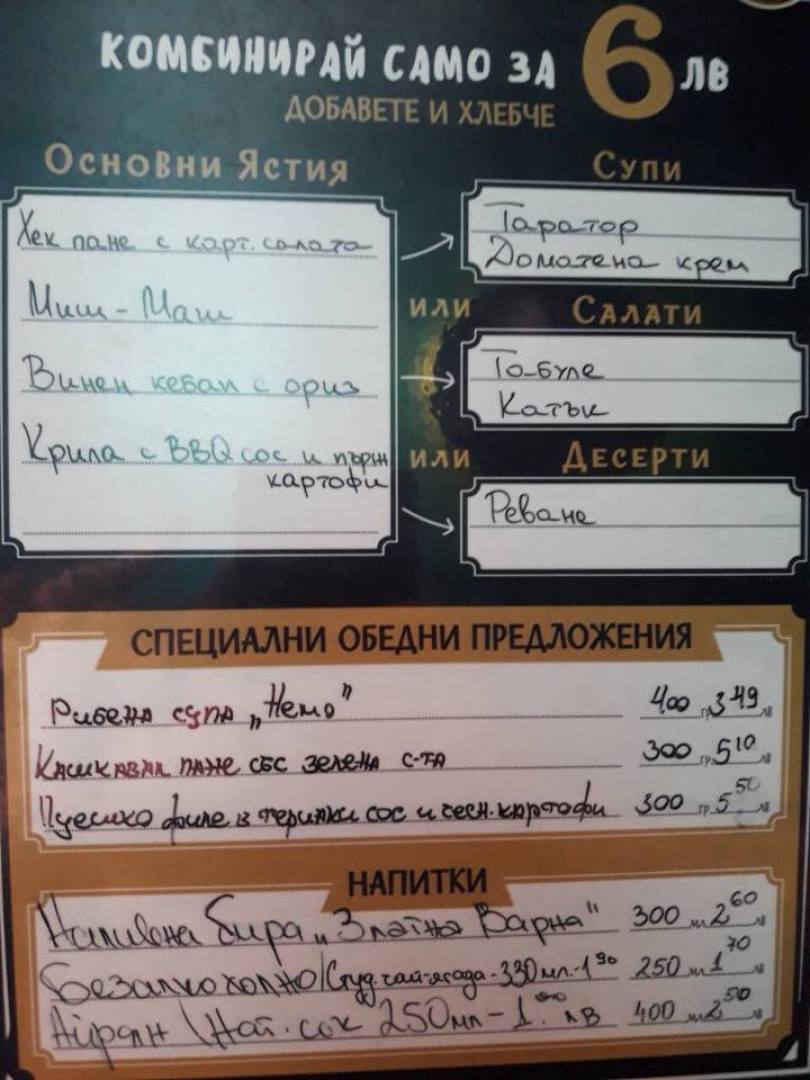 КОМБИНИРАЙ САМО ЗА 6 ЛВ
ДОБАВЕТЕ И ХЛЕБЧЕ
Основни Ястия
Хек пане с карт. салата
Миш-Маш
Винен кебап с ориз
Крила с BBQ сос и пърж
картофи
Супи
Таратор
Доматена крем
или
Салати
Та-буле
Катък
или
Десерти
Реване
СПЕЦИАЛНИ ОБЕДНИ ПРЕДЛОЖЕНИЯ
Рибена супа „Немо" 400 гр 3 49 лв
Кашкавал пане със зелена с-та 300 гр 5 10 лв
Пуешко филе в терияки сос и чесн. картофи 300 гр 5 50 лв
НАПИТКИ
Наливна бира „Златна Варна" 300 мл 2 60 лв
Безалкохолно/Студ. чай-ягода-330мл.-1 90 250 мл 1 70 лв
Айрян \ Нат. сок 250мл - 1. 00 лв 400 мл 2 50 лв